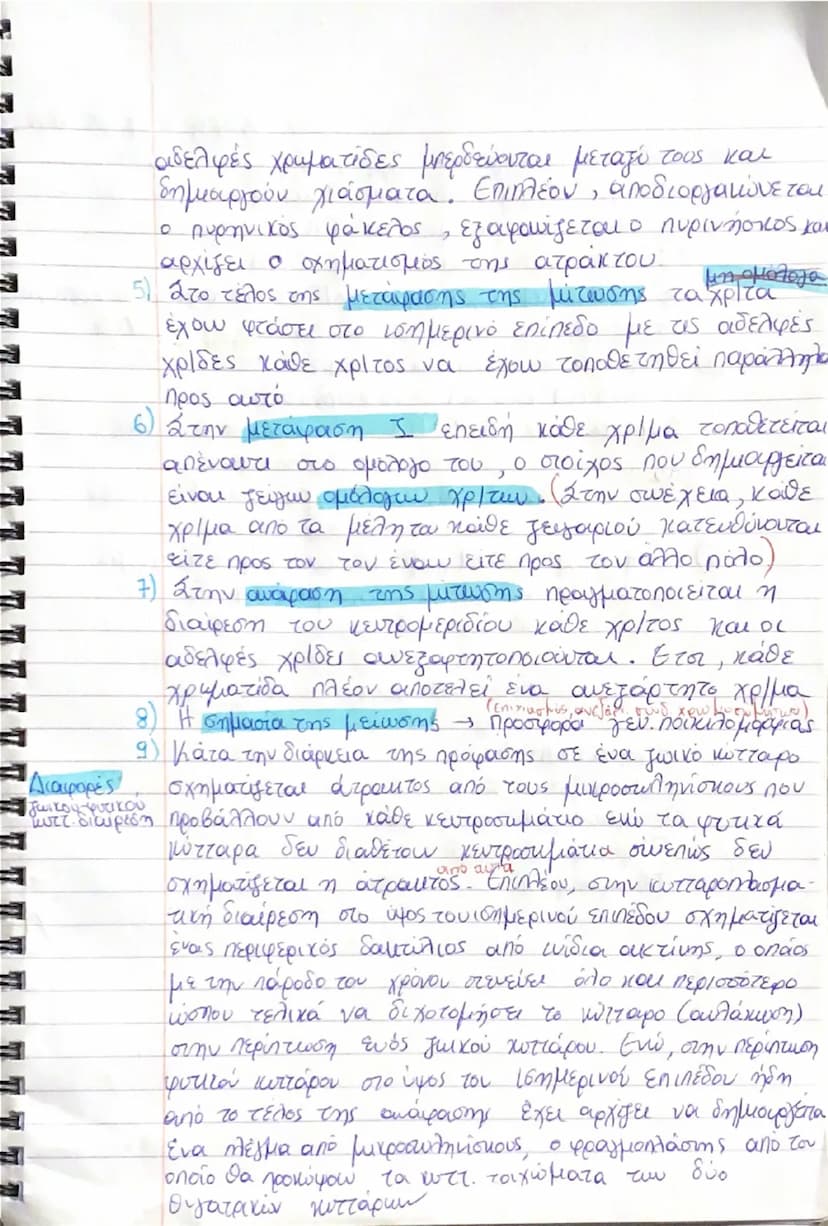 αδελφές χρωματίδες μπερδεύονται μεταξύ τους και
δημιουργούν χιάσματα. Επιπλέον, αποδιοργανώνεται
ο πυρηνικός φάκελος, εξαφανίζεται ο πυρινήσκος και
αρχίζει ο σχηματισμός της ατράκτου.
μη ομόλογα
5) Στο τέλος της μετάφασης της μίτωσης τα χρ/τα
έχουν φτάσει στο ισημερινό επίπεδο με τις αδελφές
χρ/δες κάθε χρ/τος να έχουν τοποθετηθεί παράλληλα
προς αυτό
6) Στην μετάφαση I επειδή κάθε χρ/μα τοποθετείται
απέναντι στο ομόλογο του, ο στοίχος που δημιουργείται
είναι ζεύγων ομόλογων χρ/των. (Στην συνέχεια, κάθε
χρ/μα από τα μέλη του κάθε ζευγαριού κατευθύνονται
είτε προς τον τον έναν είτε προς τον άλλο πόλο)
7) Στην ανάφαση της μίτωσης πραγματοποιείται η
διαίρεση του κεντρομεριδίου κάθε χρ/τος και οι
αδελφές χρ/δες ανεξαρτητοποιούνται. Ετσι, κάθε
χρωματίδα πλέον αποτελεί ένα ανεξάρτητο χρ/μα
(επιχιασμός, ανεξάρ. συνδ χρωμοσωμάτων)
8) Η σημασία της μείωσης → Προσφορά γεν. ποικιλομορφίας
9) Κάτα την διάρκεια της πρόφασης σε ένα ζωικό κύτταρο
Διαφορές
ζωικού-φυτικού
κυττ. διαίρεση
σχηματίζεται άτρακτος από τους μικροσωληνίσκους που
προβάλλουν από κάθε κεντροσωμάτιο ενώ τα φυτικά
κύτταρα δεν διαθέτουν κεντροσωμάτια συνεπώς δεν
από αυτά
σχηματίζεται η άτρακτος. Επιπλέον, στην κυτταροπλασμα-
τική διαίρεση στο ύψος του ισημερινού επιπέδου σχηματίζεται
ένας περιφερικός δακτύλιος από ινίδια ακτίνης, ο οποίος
με την πάροδο του χρόνου στενεύει όλο και περισσότερο
ώσπου τελικά να διχοτομήσει το κύτταρο (αυλάκωση)
στην περίπτωση ενός ζωικού κυττάρου. Ενώ, στην περίπτωση
φυτικού κυττάρου στο ύψος του ισημερινού επιπέδου ήδη
από το τέλος της ανάφασης έχει αρχίζει να δημιουργείται
ένα πλέγμα από μικροσωληνίσκους, ο φραγμοπλάστης από τον
οποίο θα προκύψουν τα κυττ. τοιχώματα των δύο
θυγατρικών κυττάρων